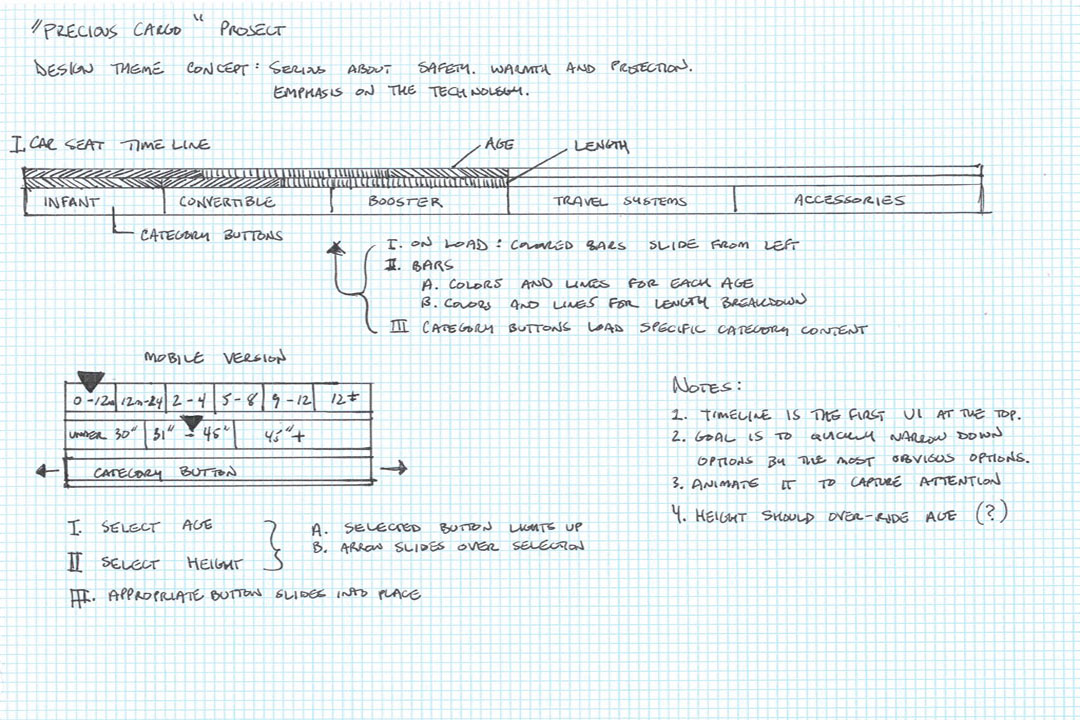 "PRECIOUS CARGO" PROJECT
DESIGN THEME CONCEPT: SERIOUS ABOUT SAFETY. WARMTH AND PROTECTION.
EMPHASIS ON THE TECHNOLOGY.
I. CAR SEAT TIME LINE
AGE
LENGTH
INFANT CONVERTIBLE BOOSTER TRAVEL SYSTEMS ACCESSORIES
CATEGORY BUTTONS
I. ON LOAD: COLORED BARS SLIDE FROM LEFT
II. BARS
A. COLORS AND LINES FOR EACH AGE
B. COLORS AND LINES FOR LENGTH BREAKDOWN
III CATEGORY BUTTONS LOAD SPECIFIC CATEGORY CONTENT
MOBILE VERSION
0-12m 12m-24 2-4 5-8 9-12 12+
UNDER 30" 31" - 45" 45"+
CATEGORY BUTTON
I. SELECT AGE
II SELECT HEIGHT
A. SELECTED BUTTON LIGHTS UP
B. ARROW SLIDES OVER SELECTION
III. APPROPRIATE BUTTON SLIDES INTO PLACE
NOTES:
1. TIMELINE IS THE FIRST UI AT THE TOP.
2. GOAL IS TO QUICKLY NARROW DOWN
OPTIONS BY THE MOST OBVIOUS OPTIONS.
3. ANIMATE IT TO CAPTURE ATTENTION
4. HEIGHT SHOULD OVER-RIDE AGE (?)